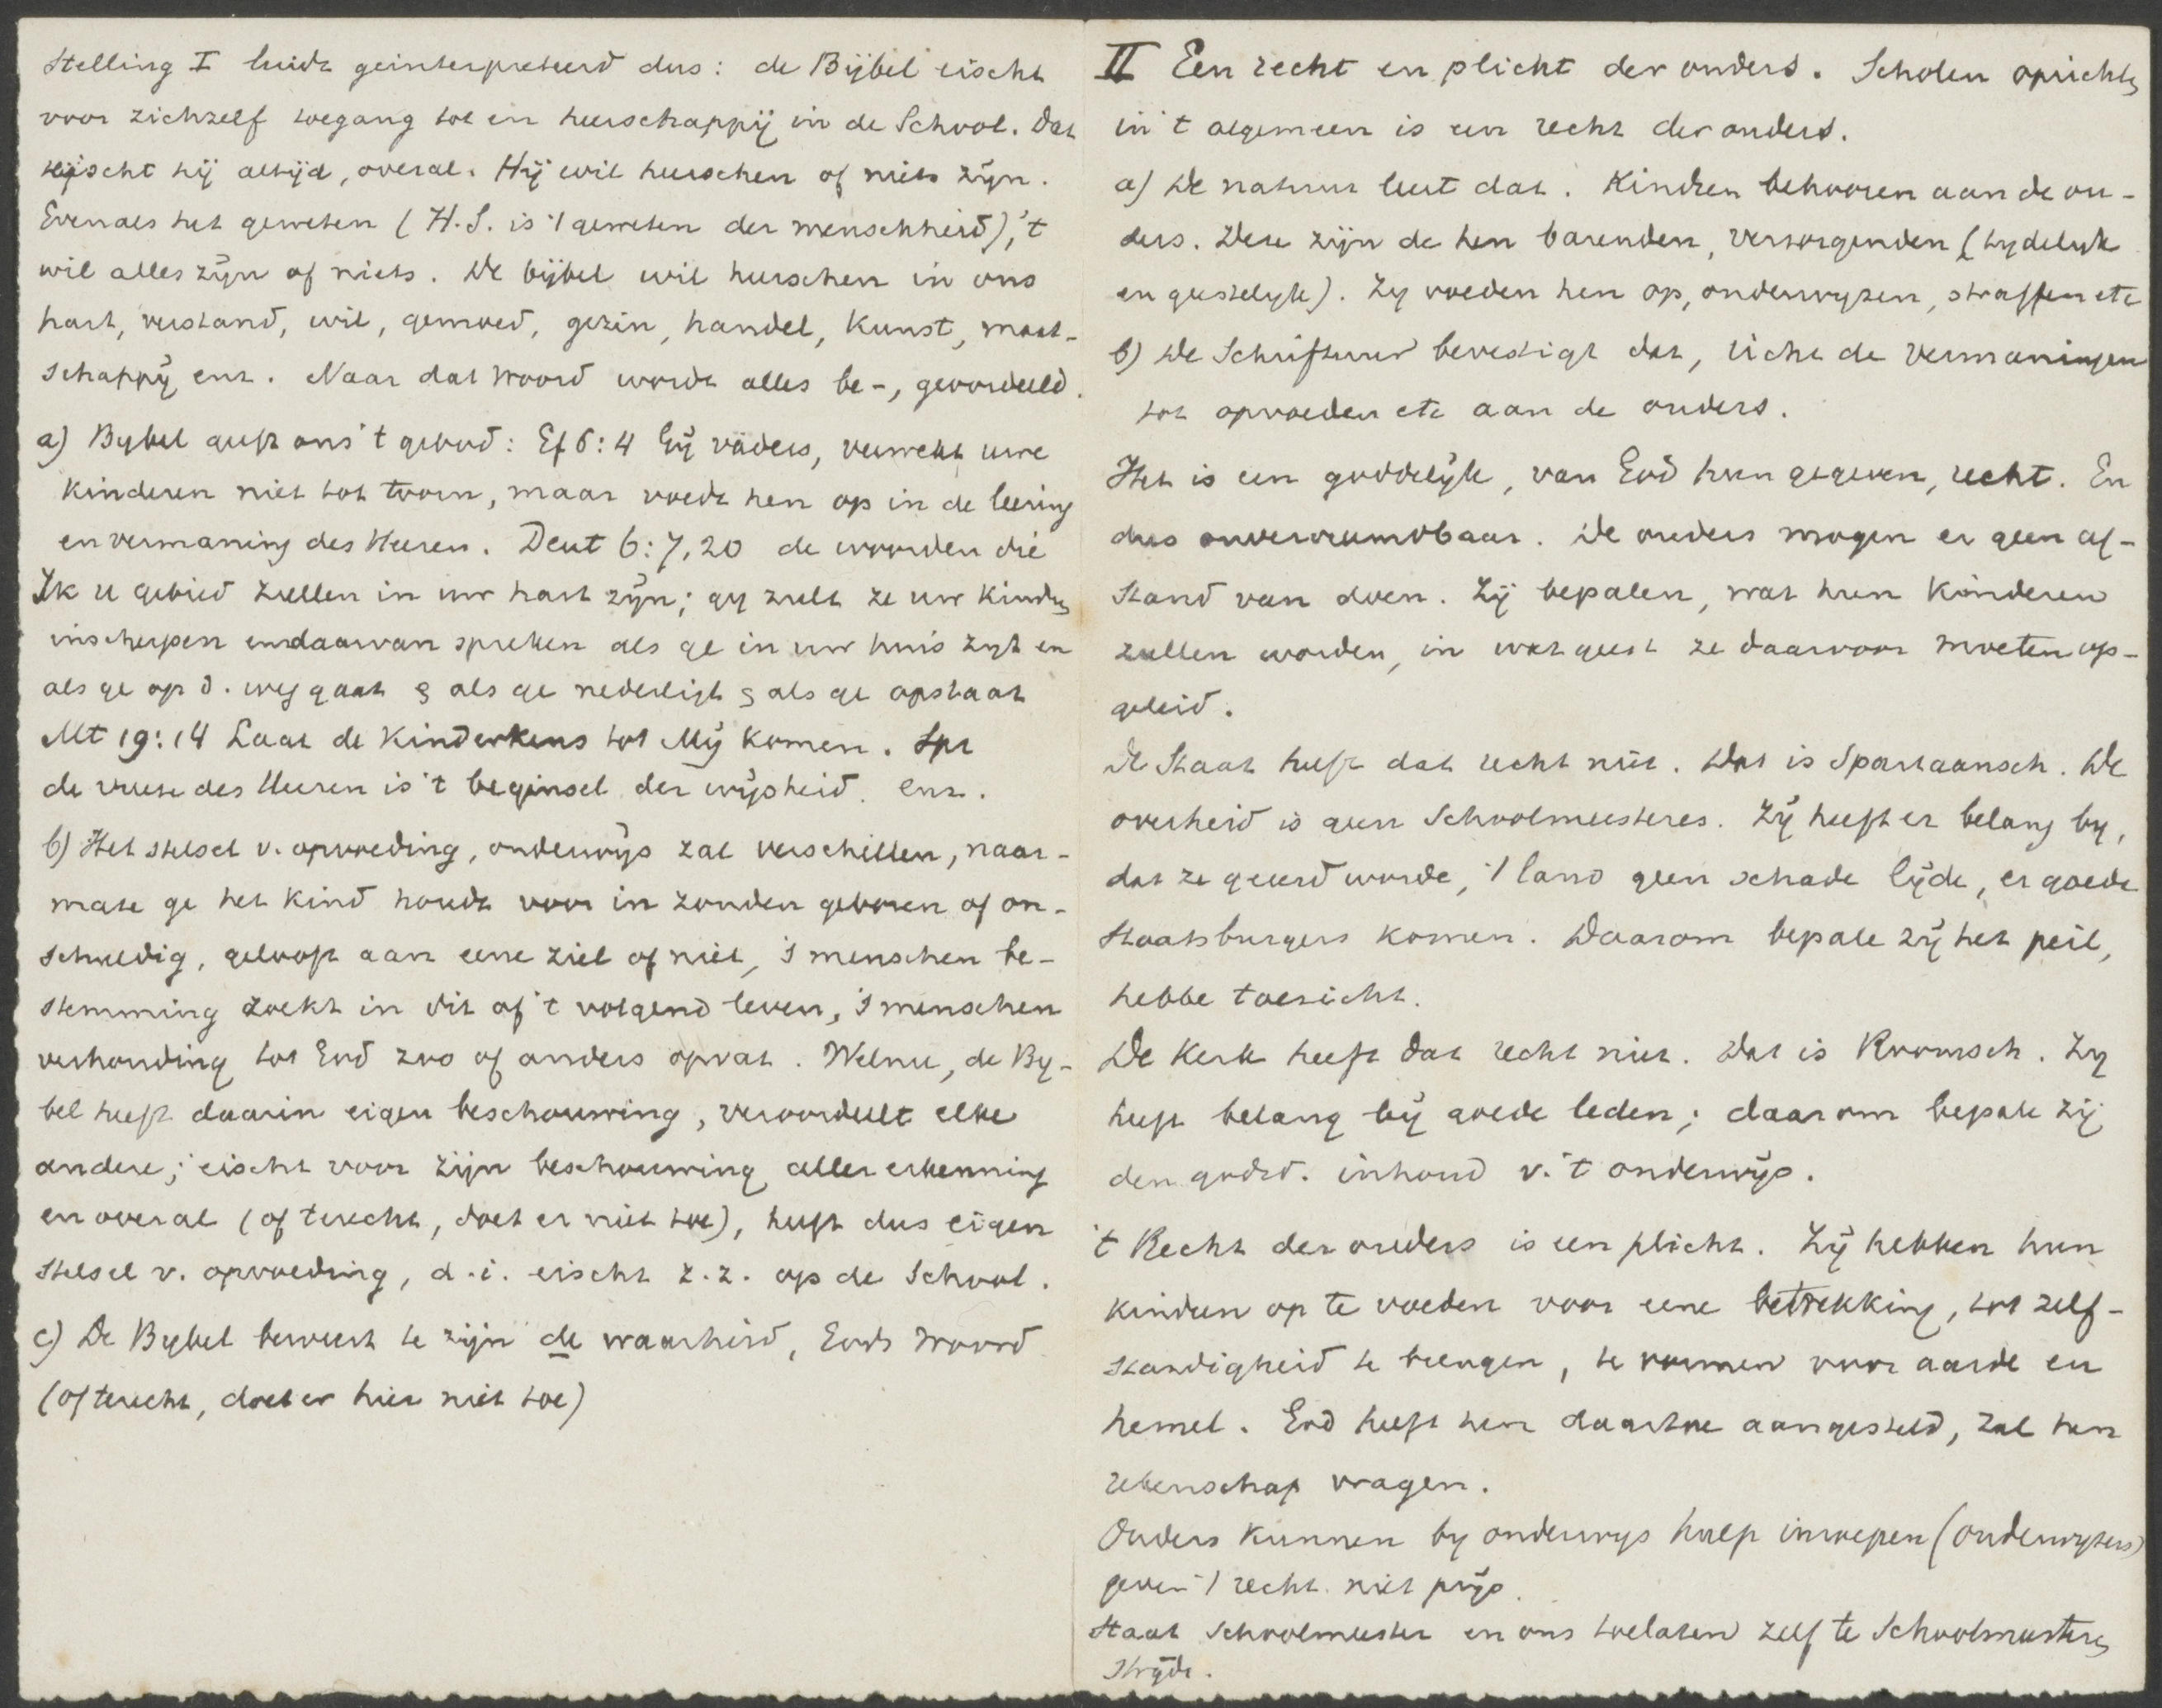 Stelling I luidt geinterpreteerd dus: de Bijbel eischt
voor zichzelf toegang tot en heerschappij in de School. Dat
eischt hij altijd, overal. Hij wil heerschen of niets zijn.
Evenals het geweten (H.S. is 't geweten der menschheid), 't
wil alles zijn of niets. De bijbel wil heerschen in ons
hart, verstand, wil, gemoed, gezin, handel, kunst, maat-
schappij enz. Naar dat woord wordt alles be-, geoordeeld.
a) Bybel geeft ons 't gebod: Ef 6:4 Gij vaders, verwekt uwe
kinderen niet tot toorn, maar voedt hen op in de leering
en vermaning des Heeren. Deut 6:7,20 de woorden die
Ik u gebied zullen in uw hart zijn; gy zult ze uw kindren
inscherpen en daarvan spreken als ge in uw huis zyt en
als ge op d. weg gaat & als ge nederligt & als ge opstaat
Mt 19:14 Laat de kinderkens tot Mij komen. Spr
de vreeze des Heeren is 't beginsel der wijsheid. enz.
b) Het stelsel v. opvoeding, onderwijs zal verschillen, naar-
mate ge het kind houdt voor in zonden geboren of on-
schuldig, gelooft aan eene ziel of niet, 's menschen be-
stemming zoekt in dit of 't volgend leven, 's menschen
verhouding tot God zoo of anders opvat. Welnu, de By-
bel heeft daarin eigen beschouwing, veroordeelt elke
andere; eischt voor zijn beschouwing aller erkenning
en overal (of terecht, doet er niet toe), heeft dus eigen
stelsel v. opvoeding, d.i. eischt z.z. op de School.
c) De Bybel beweert te zijn de waarheid, Gods Woord
(of terecht, doet er hier niet toe)
II Een recht en plicht der ouders. Scholen oprichten
in 't algemeen is een recht der ouders.
a) De natuur leert dat. Kindren behooren aan de ou-
ders. Deze zijn de hen barenden, verzorgenden (tydelyk
en geestelyk). Zy voeden hen op, onderwyzen, straffen etc
b) De Schriftuur bevestigt dat, richt de vermaningen
tot opvoeden etc aan de ouders.
Het is een goddelijk, van God hun gegeven, recht. En
dus onvervreemdbaar. De ouders mogen er geen af-
stand van doen. Zij bepalen, wat hun kinderen
zullen worden, in wat geest ze daarvoor moeten op-
geleid.
De Staat heeft dat recht niet. Dat is Spartaansch. De
overheid is geen Schoolmeesteres. Zij heeft er belang by,
dat ze geeerd worde, 't land geen schade lijde, er goede
Staatsburgers komen. Daarom bepale zij het peil,
hebbe toezicht.
De Kerk heeft dat recht niet. Dat is Roomsch. Zy
heeft belang bij goede leden; daarom bepale zij
den godsd. inhoud v. 't onderwijs.
't Recht der ouders is een plicht. Zij hebben hun
kindren op te voeden voor eene betrekking, tot zelf-
standigheid te brengen, te vormen voor aarde en
hemel. God heeft hen daartoe aangesteld, zal hen
rekenschap vragen.
Ouders kunnen by onderwys hulp inroepen (onderwyzers)
geven 't recht niet prijs.
Staat Schoolmeester en ons toelaten zelf te Schoolmeesteren
strijdt.